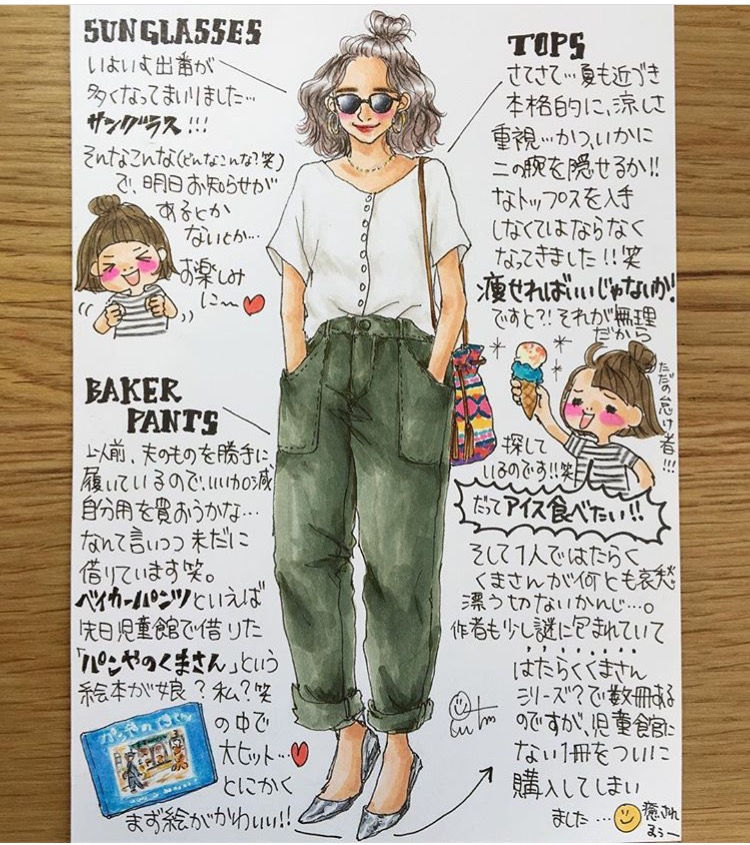 SUNGLASSES
いよいよ出番が
多くなってまいりました…
サングラス!!!
そんなこんな(どんなこんな?笑)
で、明日お知らせが
あるとか
ないとか…
お楽しみ
に〜
BAKER
PANTS
以前、夫のものを勝手に
履いているので、いい加減
自分用を買おうかな…
なんて言いつつ未だに
借りています笑。
ベイカーパンツといえば
先日児童館で借りた
「パンやのくまさん」という
絵本が娘?私?笑
の中で
大ヒット…
とにかく
まず絵がかわいい!!
パンやのくまさん
TOPS
さてさて…夏も近づき
本格的に、涼しさ
重視…かつ、いかに
二の腕を隠せるか!!
なトップスを入手
しなくてはならなく
なってきました!!笑
痩せればいいじゃないか!
ですと?!それが無理
だから
ただの怠け者!!!
探して
いるのです!!笑
だってアイス食べたい!!
そして1人ではたらく
くまさんが何とも哀愁
漂う切ないかんじ…。
作者も少し謎に包まれていて
......
はたらくくまさん
シリーズ?で数冊ある
のですが、児童館に
ない1冊をついに
購入してしまい
ました…
癒され
るぅー